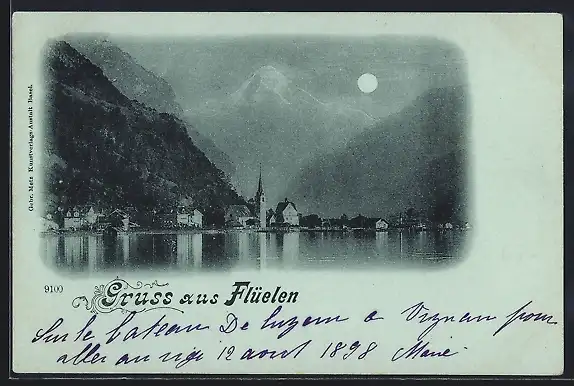 Gebr. Metz Kunstverlags-Anstalt Basel.
9100
Gruss aus Flüelen
Sur le bateau De luzern a Vignau pour
aller au rigi 12 aout 1898 Marie